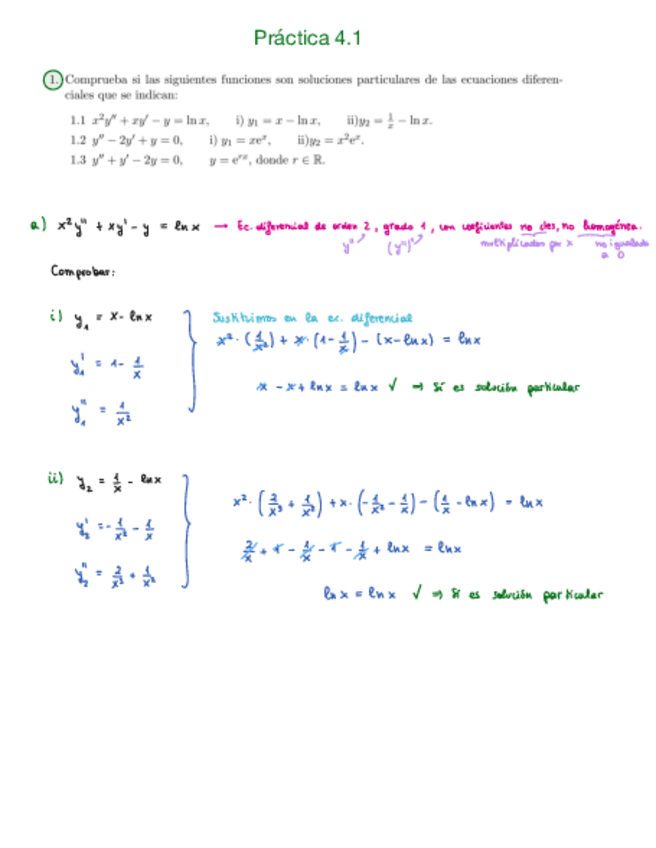 Práctica 4.1
1. Comprueba si las siguientes funciones son soluciones particulares de las ecuaciones diferen-
ciales que se indican:
1.1 x²y″ + xy′ − y = ln x, i) y₁ = x − ln x, ii)y₂ = 1/x − ln x.
1.2 y″ − 2y′ + y = 0, i) y₁ = xeˣ, ii)y₂ = x²eˣ.
1.3 y″ + y′ − 2y = 0, y = eʳˣ, donde r ∈ ℝ.
a) x²y″ + xy′ − y = ln x → Ec. diferencial de orden 2, grado 1, con coeficientes no ctes, no homogénea.
y″ (y″)¹ multiplicados por x no igualada
a 0
Comprobar:
i) y₁ = x − ln x
Sustituimos en la ec. diferencial
x² · (1/x²) + x · (1 − 1/x) − (x − ln x) = ln x
y₁′ = 1 − 1/x
x − x + ln x = ln x ✓ ⇒ Sí es solución particular
y₁″ = 1/x²
ii) y₂ = 1/x − ln x
x² · (2/x³ + 1/x²) + x · (−1/x² − 1/x) − (1/x − ln x) = ln x
y₂′ = −1/x² − 1/x
2/x + 1 − 1/x − 1 − 1/x + ln x = ln x
y₂″ = 2/x³ + 1/x²
ln x = ln x ✓ ⇒ Sí es solución particular